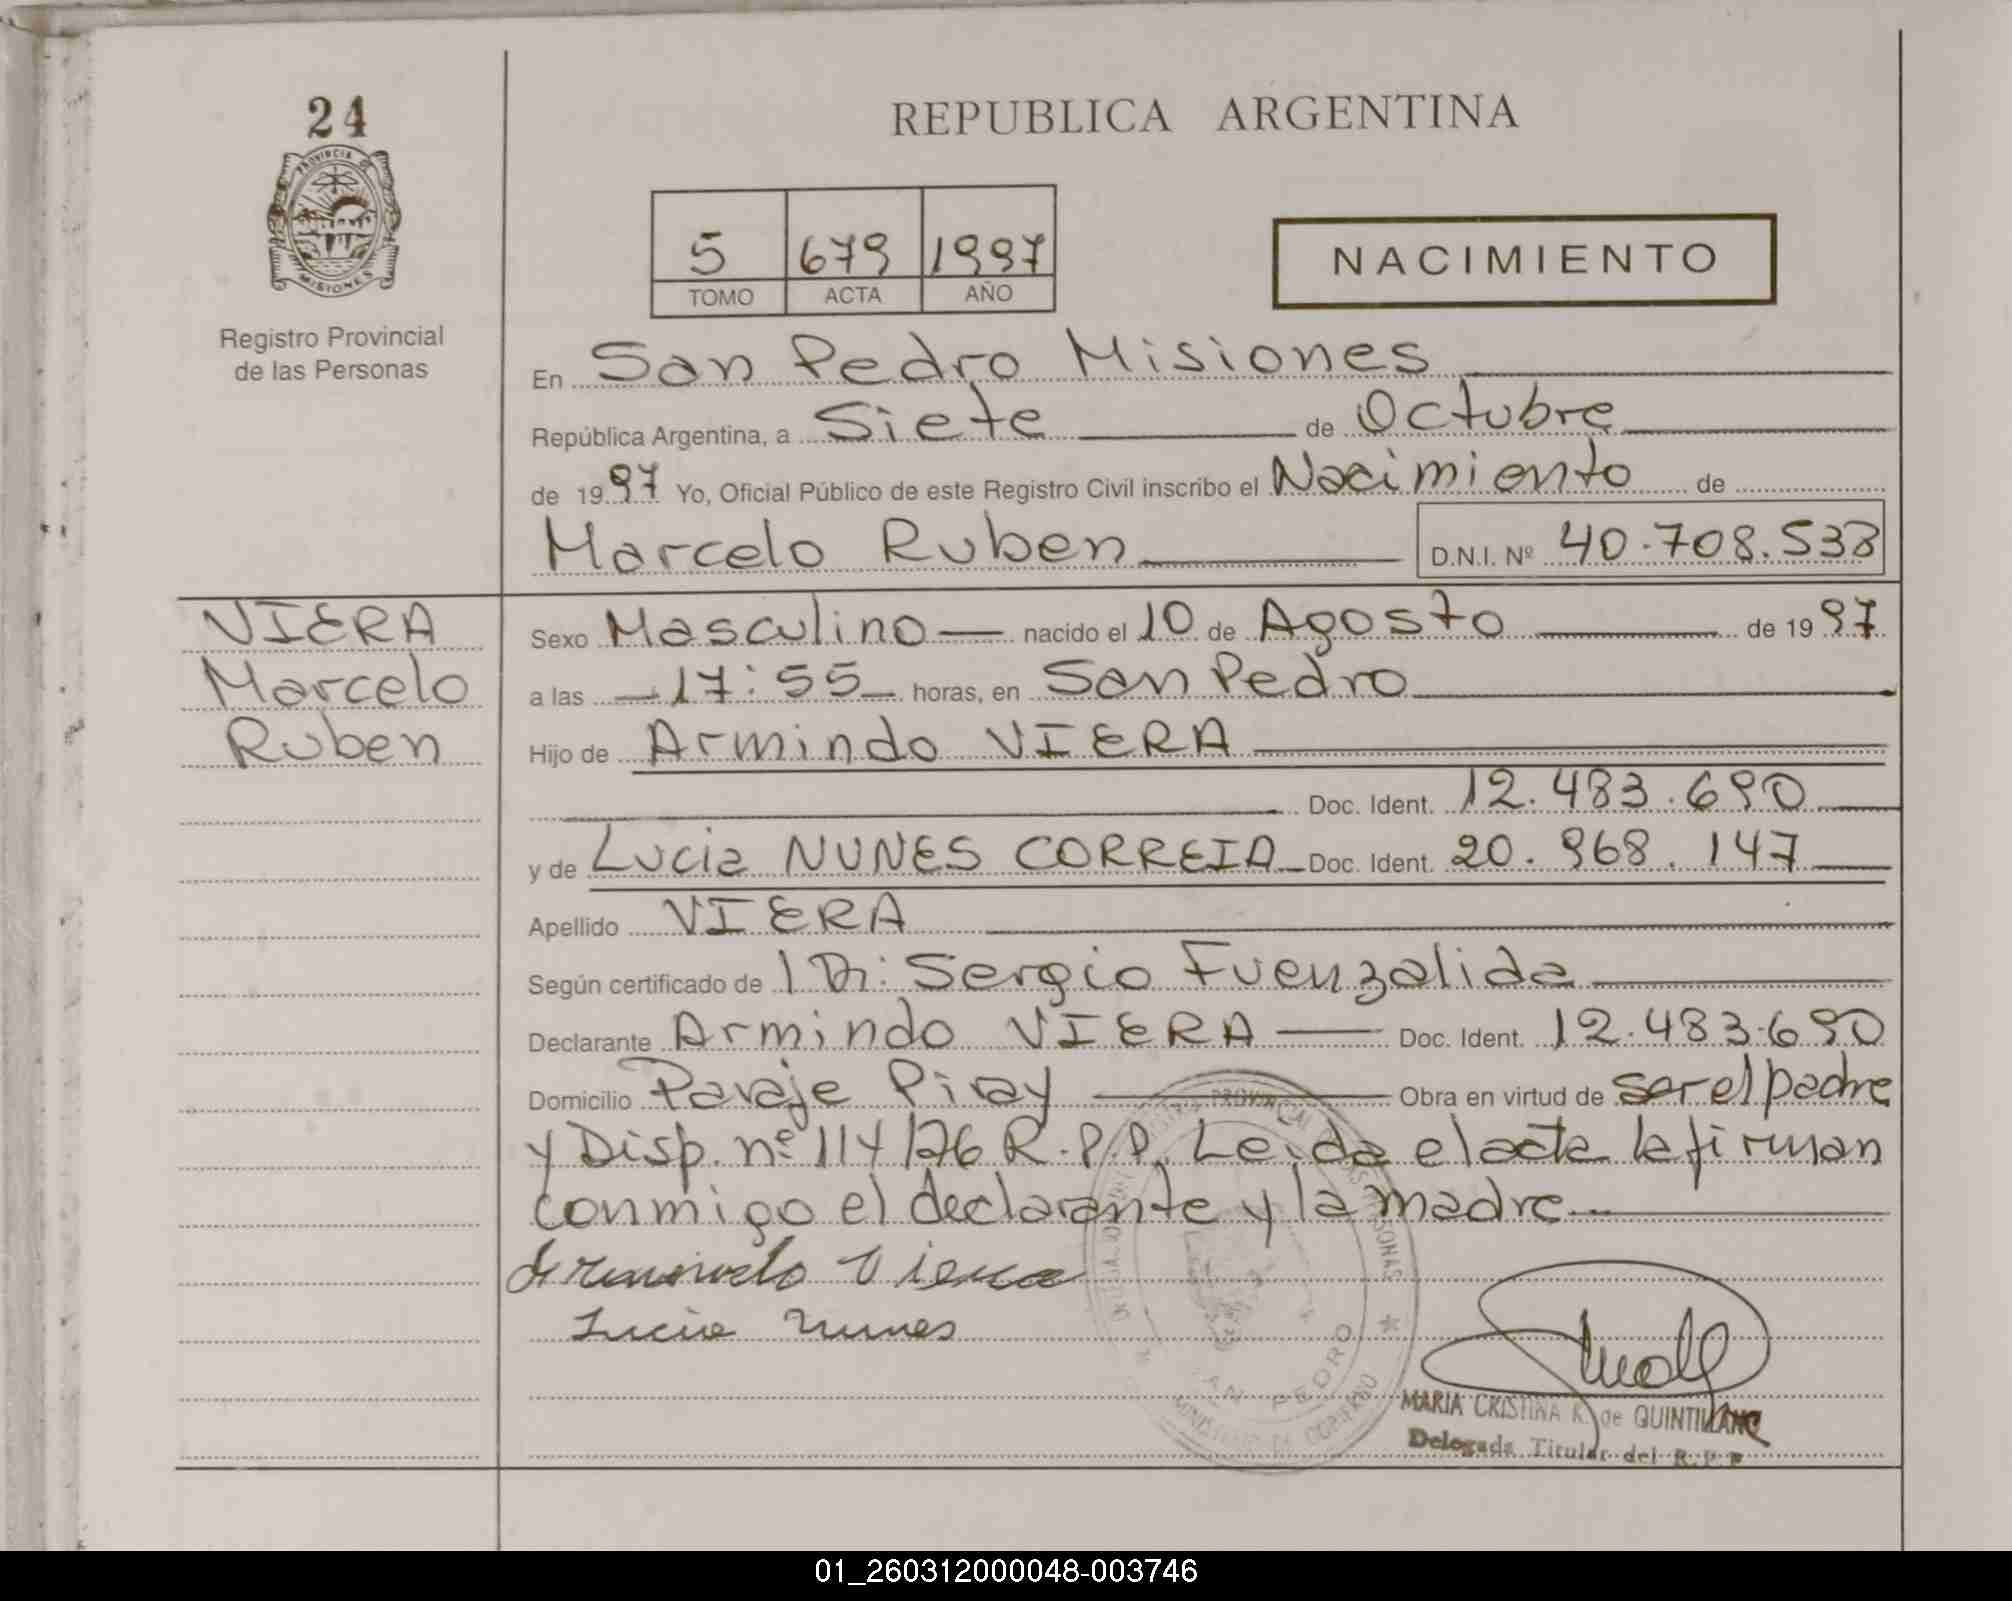 24
PROVINCIA DE
MISIONES
Registro Provincial
de las Personas
REPUBLICA ARGENTINA
5 679 1997
TOMO ACTA AÑO
NACIMIENTO
En San Pedro Misiones
República Argentina, a Siete de Octubre
de 1997 Yo, Oficial Público de este Registro Civil inscribo el Nacimiento de
Marcelo Ruben D.N.I. Nº 40.708.538
VIERA
Marcelo
Ruben
Sexo Masculino nacido el 10 de Agosto de 1997
a las 17:55 horas, en San Pedro
Hijo de Armindo VIERA
Doc. Ident. 12.483.690
y de Lucia NUNES CORREIA Doc. Ident. 20.968.147
Apellido VIERA
Según certificado de Dr: Sergio Fuenzalida
Declarante Armindo VIERA Doc. Ident. 12.483.690
Domicilio Paraje Piray Obra en virtud de ser el padre
y Disp. nº 114/76 R.P.P. Leida el acta la firman
conmigo el declarante y la madre
Armindo Viera
Lucia Nunes
SAN PEDRO
MINISTERIO DE GOBIERNO
MARIA CRISTINA R. de QUINTILLANO
Delegada Titular del R.P.P
01_260312000048-003746